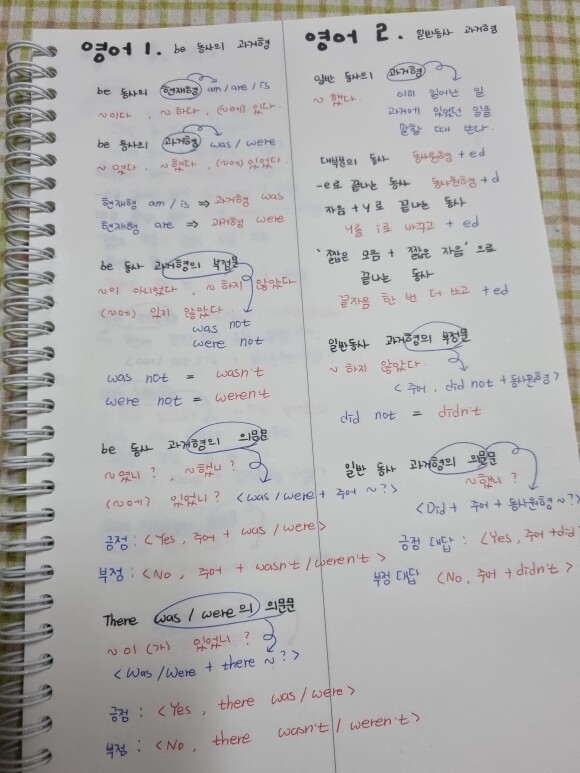 영어 1. be 동사의 과거형
be 동사의 현재형 am / are / is
~이다, ~하다, (~에) 있다.
be 동사의 과거형 was / were
~였다, ~했다, (~에) 있었다.
현재형 am / is ⇒ 과거형 was
현재형 are ⇒ 과거형 were
be 동사 과거형의 부정문
~이 아니었다, ~하지 않았다
(~에) 있지 않았다.
was not
were not
was not = wasn't
were not = weren't
be 동사 과거형의 의문문
~였니?, ~했니?
(~에) 있었니? <was / were + 주어 ~?>
긍정 : <Yes, 주어 + was / were>
부정 : <No, 주어 + wasn't / weren't>
There was / were의 의문문
~이 (가) 있었니?
<Was / Were + there ~?>
긍정 : <Yes, there was / were>
부정 : <No, there wasn't / weren't>
영어 2. 일반동사 과거형
일반 동사의 과거형
~했다. 이미 일어난 일
과거에 있었던 일을
말할 때 쓴다.
대부분의 동사 동사원형 + ed
-e로 끝나는 동사 동사원형 + d
자음 + y로 끝나는 동사
y를 i로 바꾸고 + ed
'짧은 모음 + 짧은 자음'으로
끝나는 동사
끝자음 한 번 더 쓰고 + ed
일반동사 과거형의 부정문
~하지 않았다.
<주어, did not + 동사원형>
did not = didn't
일반 동사 과거형의 의문문
~했니?
<Did + 주어 + 동사원형 ~?>
긍정 대답 : <Yes, 주어 + did
부정 대답 <No, 주어 + didn't>